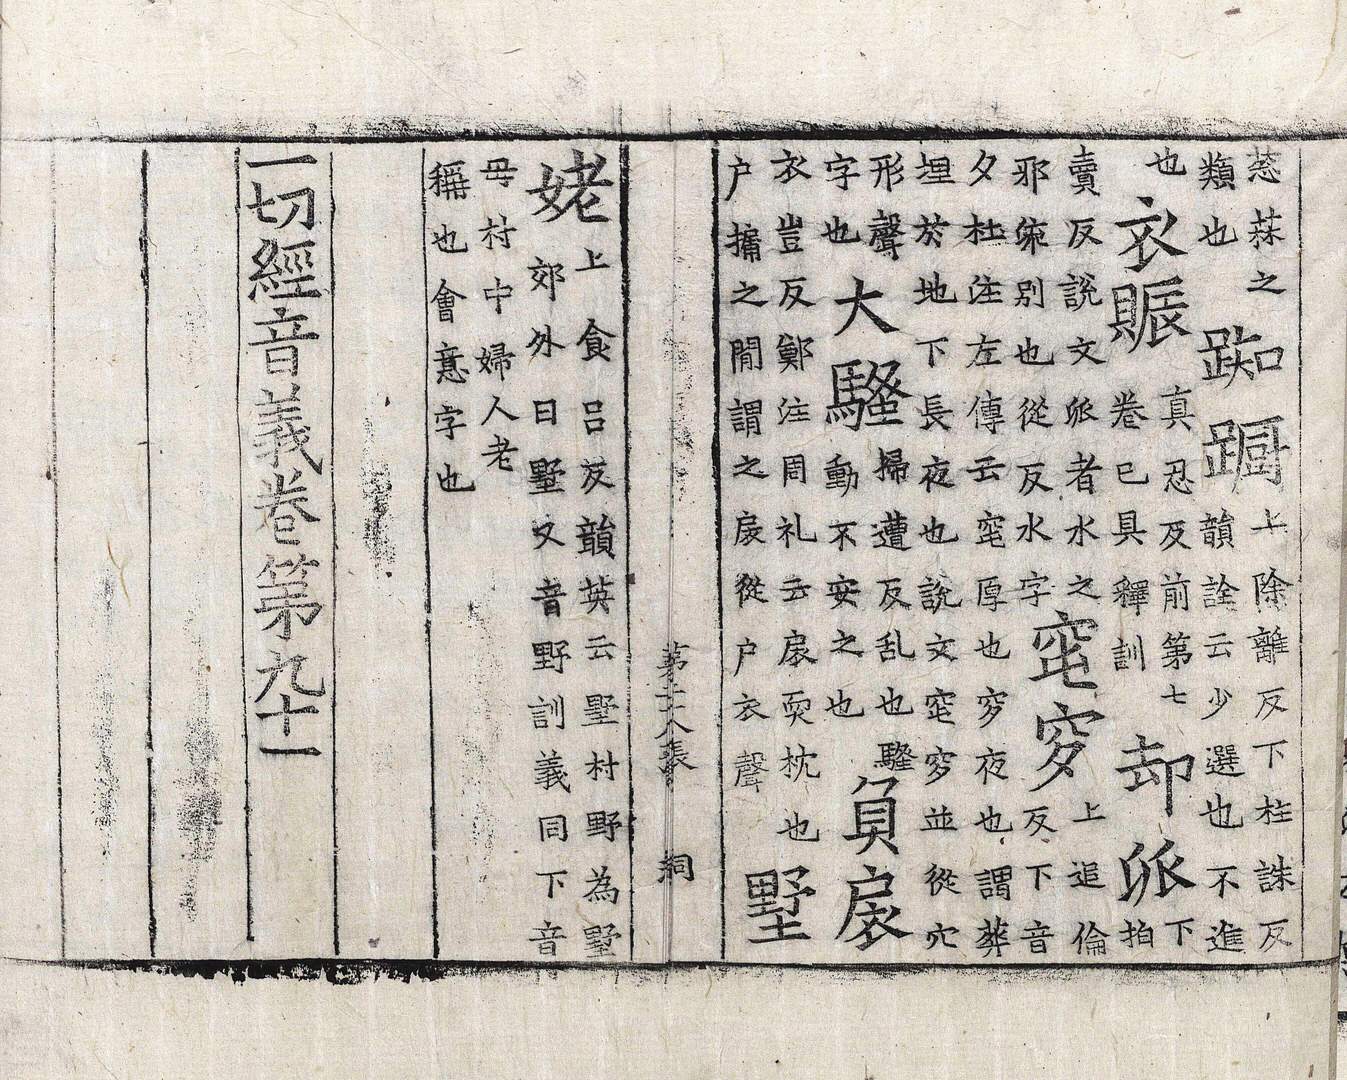 葱蒜之
類也
踟蹰
上除離反下柱誅反
韻詮云少選也不進
也
衣賑
真忍反前第七
卷已具釋訓
却派
下
拍
賣反説文派者水之
邪流別也從反水字
窀穸
上追倫
反下音
夕杜注左傳云窀厚也穸夜也謂葬
埋於地下長夜也説文窀穸並從穴
形聲
字也
大騷
掃遭反乱也騷
動不安之也
負扆
衣豈反鄭注周礼云扆耎枕也
户牖之間謂之扆從户衣聲
墅
第二十八張 洞
姥
上食吕反韻英云墅村野為墅
郊外曰墅又音野訓義同下音
母村中婦人老
稱也會意字也
一切經音義卷第九十一